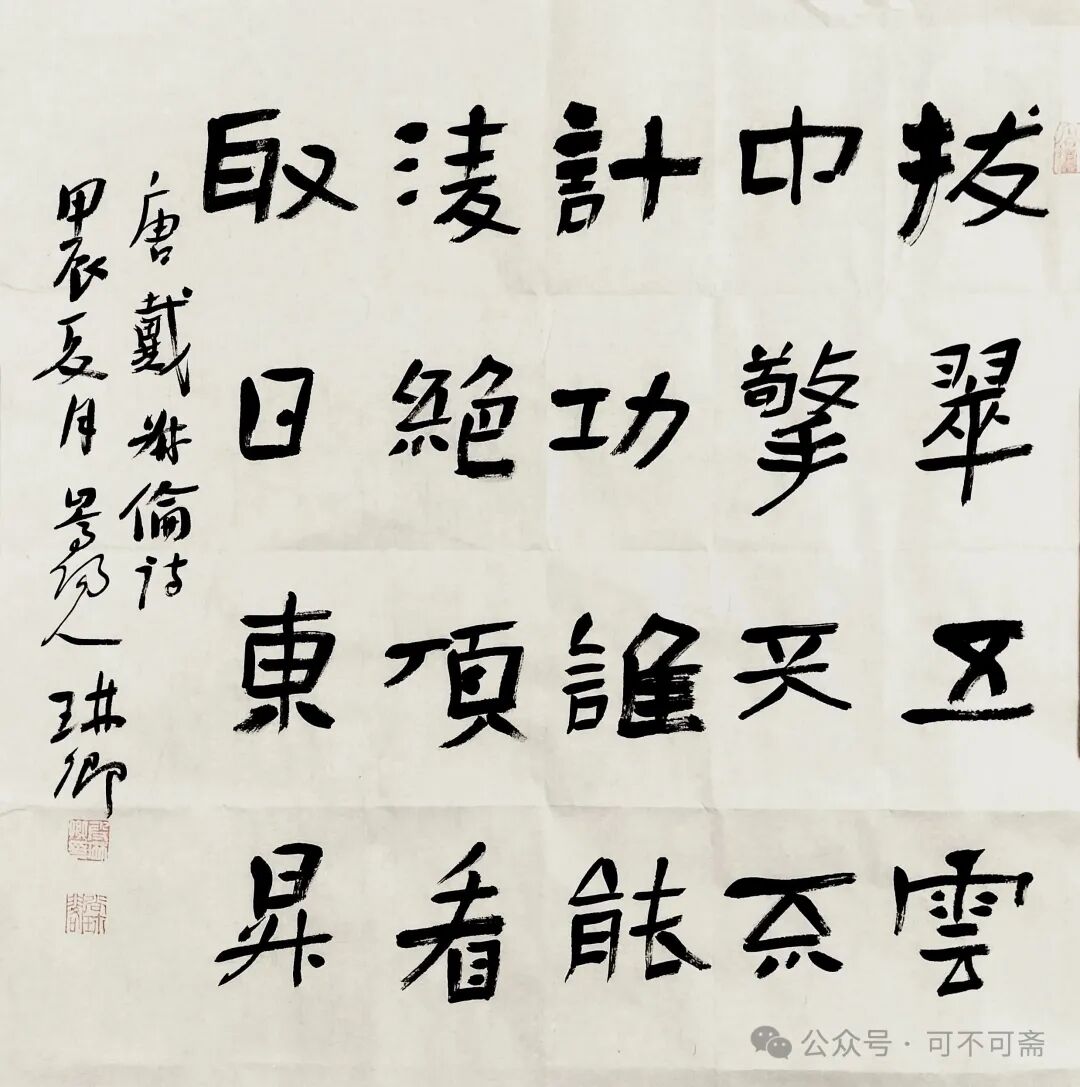 拔翠五雲
中擎天不
計功誰能
淩絶頂看
取日東昇
唐戴叔倫詩
甲辰夏月嵩陽人琳卿
公众号 · 可不可斋